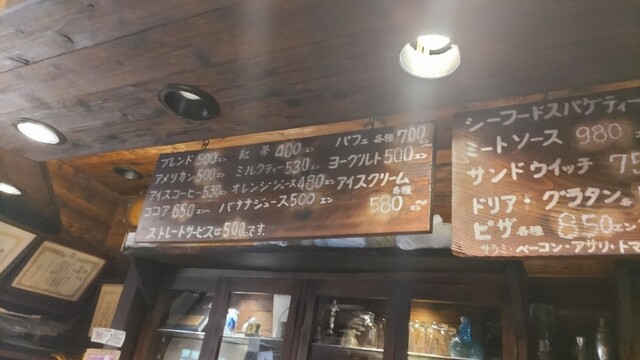 ブレンド500エン 紅茶400エン パフェ各種700エン
アメリカン500エン ミルクティー530エン ヨーグルト500エン
アイスコーヒー530エン オレンジジュース480エン アイスクリーム
ココア650エン バナナジュース500エン 各種580エン〜
ストレートサービスは500エンです。
シーフードスパゲティー
ミートソース 980
サンドウイッチ 75
ドリア・グラタン
ピザ各種 850エン
サラミ・ベーコン・アサリ・トマ